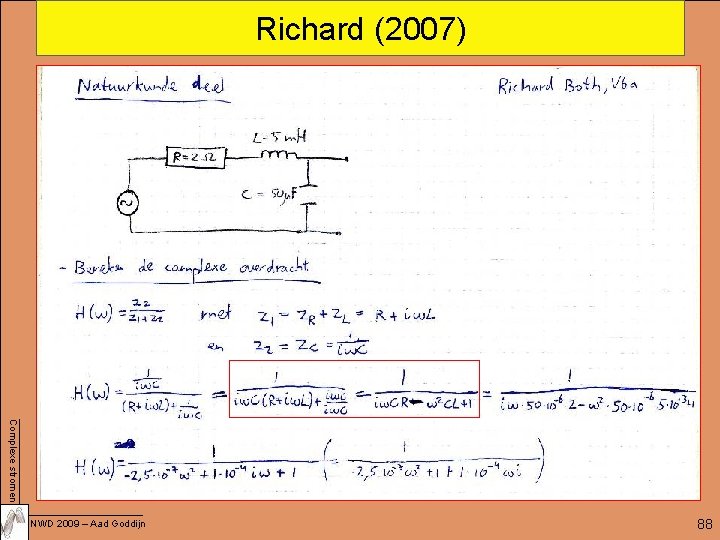 Richard (2007)
Natuurkunde deel
Richard Both, V6a
L=5 mH
R=2Ω
C = 50μF
~
- Bereken de complexe overdracht.
H(ω) = Z2/(Z1+Z2) met Z1 = ZR + ZL = R + iωL
en Z2 = ZC = 1/(iωC)
H(ω) = (1/(iωC))/((R+iωL)+1/(iωC)) = 1/(iωC(R+iωL)+iωC/iωC) = 1/(iωCR - ω²CL+1) = 1/(iω·50·10⁻⁶·2-ω²·50·10⁻⁶·5·10⁻³+1)
H(ω) = 1/(-2,5·10⁻⁷ω²+1·10⁻⁴iω+1) (= 1/(-2,5·10⁻⁷ω²+1+1·10⁻⁴ωi))
Complexe stromen
NWD 2009 – Aad Goddijn
88